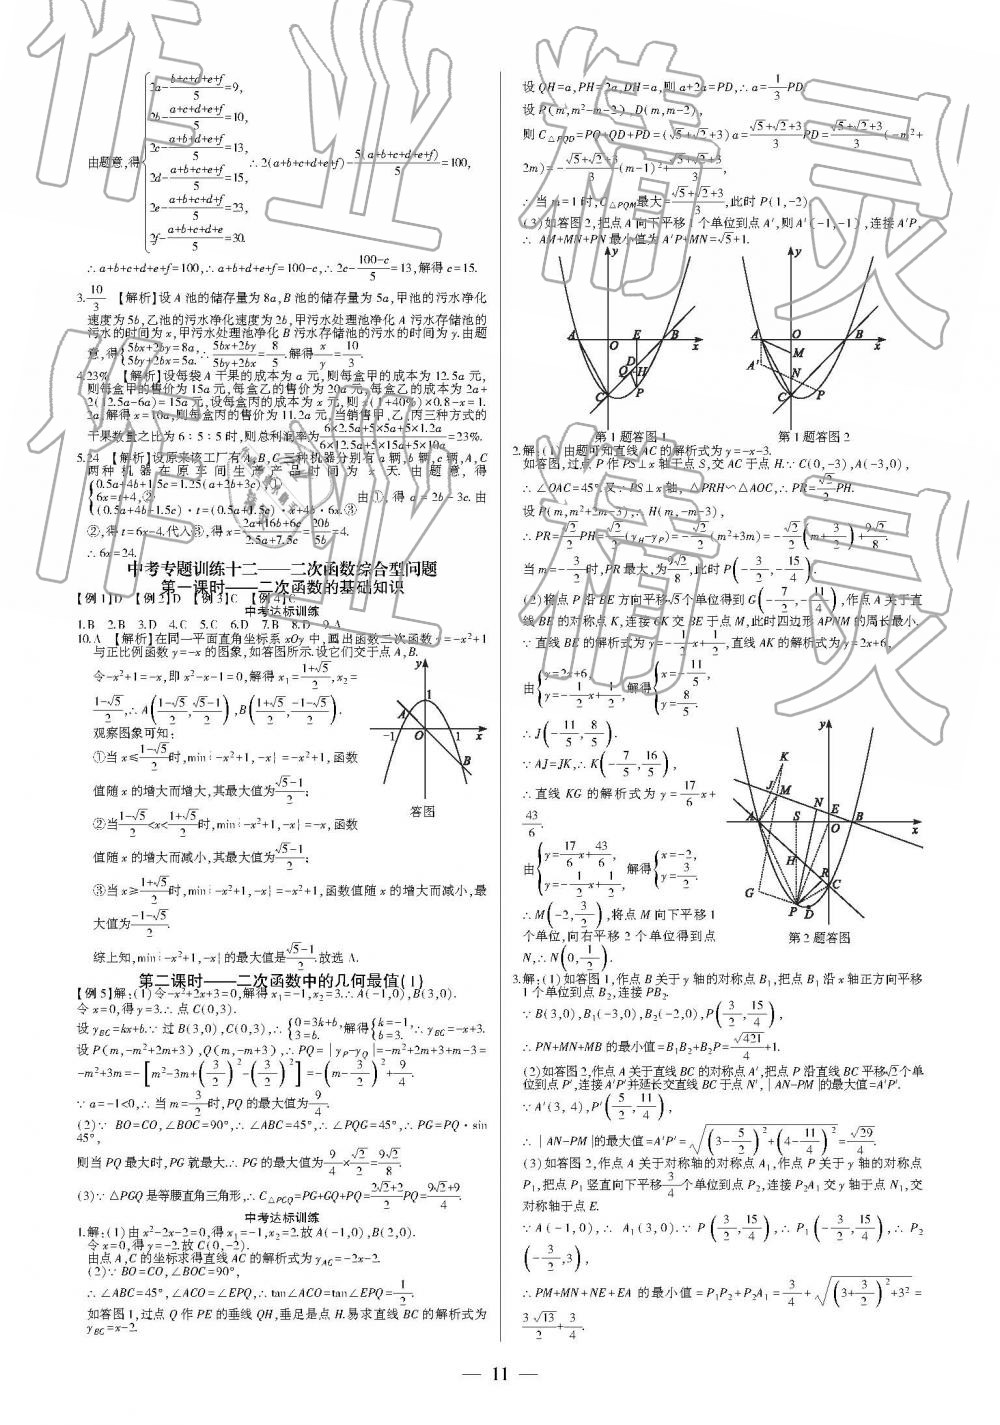 由题意,得
2a-(b+c+d+e+f)/5=9,
2b-(a+c+d+e+f)/5=10,
2c-(a+b+d+e+f)/5=13,
2d-(a+b+c+e+f)/5=15,
2e-(a+b+c+d+f)/5=23,
2f-(a+b+c+d+e)/5=30.
∴2(a+b+c+d+e+f)-5(a+b+c+d+e+f)/5=100,
∴a+b+c+d+e+f=100,∴a+b+d+e+f=100-c,∴2c-(100-c)/5=13,解得c=15.
3.10/3 【解析】设A池的储存量为8a,B池的储存量为5a,甲池的污水净化
速度为5b,乙池的污水净化速度为2b,甲污水处理池净化A污水存储池的
污水的时间为x,甲污水处理池净化B污水存储池的污水的时间为y.由题
意,得{5bx+2by=8a, 5by+2bx=5a.∴(5bx+2by)/(5by+2bx)=8/5,解得x/y=10/3.
4.23% 【解析】设每袋A干果的成本为a元,则每盒甲的成本为12.5a元,
则每盒甲的售价为15a元,每盒乙的售价为20a元,每盒乙的成本为2a+
2(2.5a-6a)=15a元,设每盒丙的成本为x元,则x(1+40%)×0.8-x=1.
2a,解得x=10a,则每盒丙的售价为11.2a元,当销售甲、乙、丙三种方式的
干果数量之比为6:5:5时,则总利润率为(6×2.5a+5×5a+5×1.2a)/(6×12.5a+5×15a+5×10a)=23%.
5.24 【解析】设原来该工厂有A,B,C三种机器分别有a辆,b辆,c辆,A,C
两种机器在原车间生产产品时间为x天.由题意,得
{0.5a+4b+1.5c=1.25(a+2b+3c),①
6x=t+4,②
(0.5a+4b+1.5c)·t=(0.5a+1.5c)·x+4b·6x.③
由①,得a=2b-3c.由
②,得t=6x-4.代入③,得x=(2a+16b+6c)/(2.5a+7.5c)=20b/5b=4.
∴6x=24.
中考专题训练十二——二次函数综合型问题
第一课时——二次函数的基础知识
【例1】D 【例2】D 【例3】C 【例4】C
中考达标训练
1.B 2.B 3.D 4.C 5.C 6.D 7.B 8.D 9.A
10.A 【解析】在同一平面直角坐标系xOy中,画出函数二次函数y=-x²+1
与正比例函数y=-x的图象,如答图所示.设它们交于点A,B.
令-x²+1=-x,即x²-x-1=0,解得x₁=(1+√5)/2,x₂=
(1-√5)/2,∴A((1-√5)/2,(√5-1)/2),B((1+√5)/2,(-1-√5)/2).
观察图象可知:
①当x≤(1-√5)/2时,min{-x²+1,-x}=-x²+1,函数
值随x的增大而增大,其最大值为(√5-1)/2;
②当(1-√5)/2<x<(1+√5)/2时,min{-x²+1,-x}=-x,函数
值随x的增大而减小,其最大值为(√5-1)/2;
③当x≥(1+√5)/2时,min{-x²+1,-x}=-x²+1,函数值随x的增大而减小,最
大值为(-1-√5)/2.
综上知,min{-x²+1,-x}的最大值是(√5-1)/2.故选A.
y
1
A
-1
O
1
x
B
答图
第二课时——二次函数中的几何最值(1)
【例5】解:(1)令-x²+2x+3=0,解得x₁=-1,x₂=3.∴A(-1,0),B(3,0).
令x=0,得y=3.∴点C(0,3).
设y_BC=kx+b.∵过B(3,0),C(0,3),∴{0=3k+b, 3=b.解得{k=-1, b=3.∴y_BC=-x+3.
设P(m,-m²+2m+3),Q(m,-m+3),∴PQ=|y_P-y_Q|=-m²+2m+3+m-3=
-m²+3m=-[m²-3m+(3/2)²-(3/2)²]=-(m-3/2)²+9/4.
∵a=-1<0,∴当m=3/2时,PQ的最大值为9/4.
(2)∵BO=CO,∠BOC=90°,∴∠ABC=45°,∴∠PQG=45°,∴PG=PQ·sin
45°,
则当PQ最大时,PG就最大.∴PG的最大值为9/4×√2/2=9√2/8.
(3)∵△PGQ是等腰直角三角形,∴C△PGQ=PG+GQ+PQ=(2√2+2)/2PQ=(9√2+9)/4.
中考达标训练
1.解:(1)由x²-2x-2=0,得x₁=-1,x₂=2.故A(-1,0),B(2,0).
令x=0,得y=-2.故C(0,-2).
由点A,C的坐标求得直线AC的解析式为y_AC=-2x-2.
(2)∵BO=CO,∠BOC=90°,
∴∠ABC=45°,∠ACO=∠EPQ,∴tan∠ACO=tan∠EPQ=1/2.
如答图1,过点Q作PE的垂线QH,垂足是点H.易求直线BC的解析式为
y_BC=x-2.
设QH=a,PH=2a,DH=a,则a+2a=PD,∴a=1/3PD.
设P(m,m²-m-2),D(m,m-2),
则C△PQD=PQ+QD+PD=(√5+√2+3)a=(√5+√2+3)/3PD=(√5+√2+3)/3(-m²+
2m)=-(√5+√2+3)/3(m-1)²+(√5+√2+3)/3,
∴当m=1时,C△PQM最大=(√5+√2+3)/3,此时P(1,-2).
(3)如答图2,把点A向下平移1个单位到点A′,则A′(-1,-1),连接A′P,
∴AM+MN+PN最小值为A′P+MN=√5+1.
y
A
O
E
B
x
D
Q
H
C
P
第1题答图1
y
A
O
B
x
M
A′
N
C
P
第1题答图2
2.解:(1)由题可知直线AC的解析式为y=-x-3.
如答图,过点P作PS⊥x轴于点S,交AC于点H.∵C(0,-3),A(-3,0),
∴∠OAC=45°.又∵PS⊥x轴,△PRH∽△AOC,∴PR=√2/2PH.
设P(m,m²+2m-3),∴H(m,-m-3),
∴PR=√2/2PH=√2/2(y_H-y_P)=-√2/2(m²+3m)=-√2/2(m+3/2)²+9√2/8.
当m=-3/2时,PR最大,为9√2/8,此时P(-3/2,-15/4).
(2)将点P沿BE方向平移√5个单位得到G(-7/2,-11/4),作点A关于直
线BE的对称点K,连接GK交BE于点M,此时四边形APNM的周长最小.
∵直线BE的解析式为y=-1/2x+1/2,直线AK的解析式为y=2x+6,
由{y=2x+6, y=-1/2x+1/2,解得{x=-11/5, y=8/5.
∴J(-11/5,8/5).
∵AJ=JK,∴K(-7/5,16/5),
∴直线KG的解析式为y=17/6x+
43/6.
由{y=17/6x+43/6, y=-1/2x+1/2,解得{x=-2, y=3/2.
∴M(-2,3/2),将点M向下平移1
个单位,向右平移2个单位得到点
N,∴N(0,1/2).
y
K
J
M
N
E
A
S
O
B
x
H
R
C
G
P
D
第2题答图
3.解:(1)如答图1,作点B关于y轴的对称点B₁,把点B₁沿x轴正方向平移
1个单位到点B₂,连接PB₂.
∵B(3,0),B₁(-3,0),B₂(-2,0),P(3/2,15/4),
∴PN+MN+MB的最小值=B₁B₂+B₂P=√421/4+1.
(2)如答图2,作点A关于直线BC的对称点A′,把点P沿直线BC平移√2个单
位到点P′,连接A′P′并延长交直线BC于点N′,|AN-PM|的最大值=A′P′.
∵A′(3,4),P′(5/2,11/4),
∴|AN-PM|的最大值=A′P′=√((3-5/2)²+(4-11/4)²)=√29/4.
(3)如答图2,作点A关于对称轴的对称点A₁,作点P关于y轴的对称点
P₁,把点P₁竖直向下平移3/4个单位到点P₂,连接P₂A₁交y轴于点N₁,交
对称轴于点E.
∵A(-1,0),∴A₁(3,0).∵P(3/2,15/4),∴P₁(-3/2,15/4),∴P₂
(-3/2,3),
∴PM+MN+NE+EA的最小值=P₁P₂+P₂A₁=3/4+√((3+3/2)²+3²)=
3√13/2+3/4.
— 11 —
作业精灵
作业精灵